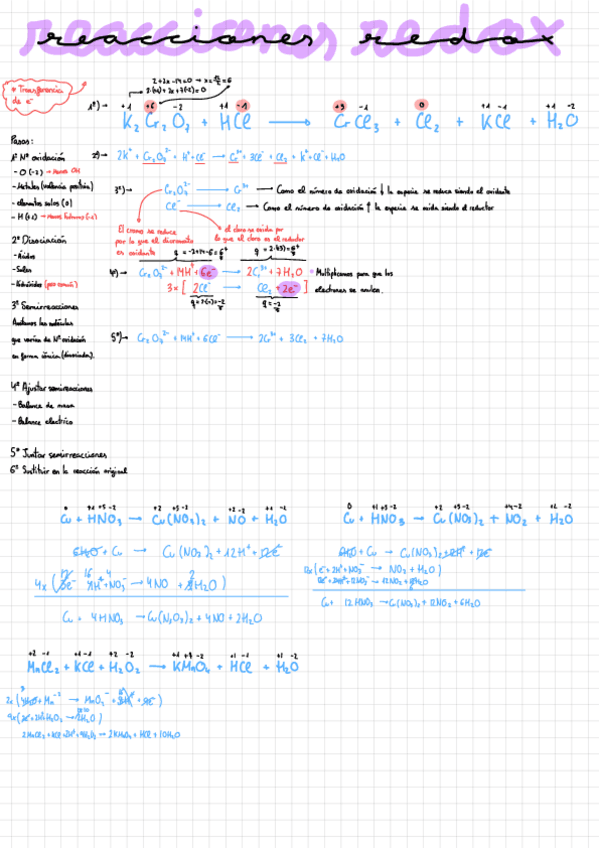 reacciones redox
* Transferencia de e⁻
2+2x-14=0 → x=12/2=6
2·(+1)+2x+7(-2)=0
1º) → +1 +6 -2 +1 -1 +3 -1 0 +1 -1 +1 -2
K₂Cr₂O₇ + HCl → CrCl₃ + Cl₂ + KCl + H₂O
Pasos:
1º Nº oxidación
- O (-2) → menos OH
- Metales (valencia positiva)
- elementos solos (0)
- H (+1)
2) → 2K⁺ + Cr₂O₇²⁻ + H⁺ + Cl⁻ → Cr³⁺ + 3Cl⁻ + Cl₂ + K⁺ + Cl⁻ + H₂O
3º) → Cr₂O₇²⁻ → Cr³⁺ → Como el número de oxidación ↓ la especie se reduce siendo el oxidante
Cl⁻ → Cl₂ → Como el número de oxidación ↑ la especie se oxida siendo el reductor
El cromo se reduce por lo que el dicromato es oxidante
el cloro se oxida por lo que el cloro es el reductor
2º Disociación
- Ácidos
- Sales
- Hidróxidos (poco común)
q = -2+14-6=6⁺
q = 2·(+3)=6⁺
4) → Cr₂O₇²⁻ + 14H⁺ + 6e⁻ → 2Cr³⁺ + 7H₂O
3× [ 2Cl⁻ → Cl₂ + 2e⁻ ]
* Multiplicamos para que los electrones se anulen.
q = 2(-1)=-2
q = -2
3º Semirreacciones
Anotamos las moléculas
que varían de Nº oxidación
en forma iónica (disociadas).
5º) → Cr₂O₇²⁻ + 14H⁺ + 6Cl⁻ → 2Cr³⁺ + 3Cl₂ + 7H₂O
4º Ajustar semirreacciones
- Balance de masa
- Balance eléctrico
5º Juntar semirreacciones
6º Sustituir en la reacción original
0 +1 +5 -2 +2 +5 -2 +2 -2 +1 -2
Cu + HNO₃ → Cu(NO₃)₂ + NO + H₂O
Cu → Cu(NO₃)₂ + 12H⁺ + 12e⁻
4x ( 3e⁻ H⁺ + NO₃⁻ → 4NO + 2H₂O )
Cu + 4HNO₃ → Cu(NO₃)₂ + 4NO + 2H₂O
0 +1 +5 -2 +2 +5 -2 +4 -2 +1 -2
Cu + HNO₃ → Cu(NO₃)₂ + NO₂ + H₂O
+ Cu → Cu(NO₃)₂
12x ( e⁻ + 2H⁺ + NO₃⁻ → NO₂ + H₂O )
Cu + 12HNO₃ → Cu(NO₃)₂ + 12NO₂ + 6H₂O
+2 -1 +1 -1 +1 -1 +1 -2
MnCl₂ + KCl + H₂O₂ → KMnO₄ + HCl + H₂O
2MnCl₂ + KCl + 2H⁺ + 9H₂O₂ → 2KMnO₄ + HCl + 10H₂O